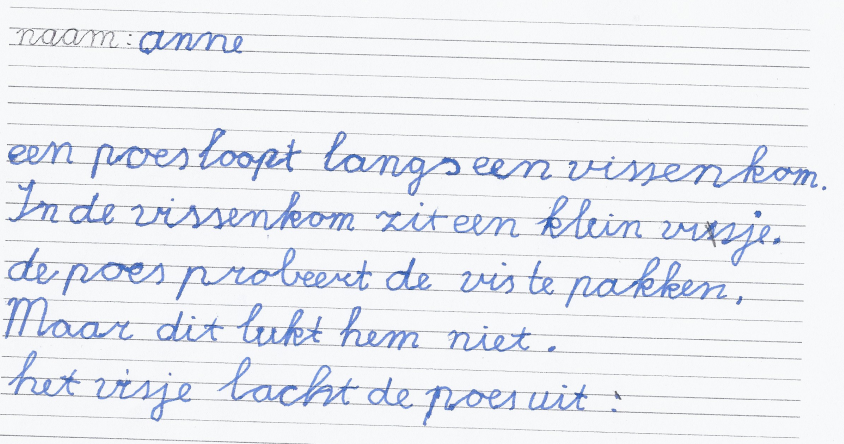 naam: anne
een poes loopt langs een vissenkom.
In de vissenkom zit een klein visje.
de poes probeert de vis te pakken,
Maar dit lukt hem niet.
het visje lacht de poes uit :